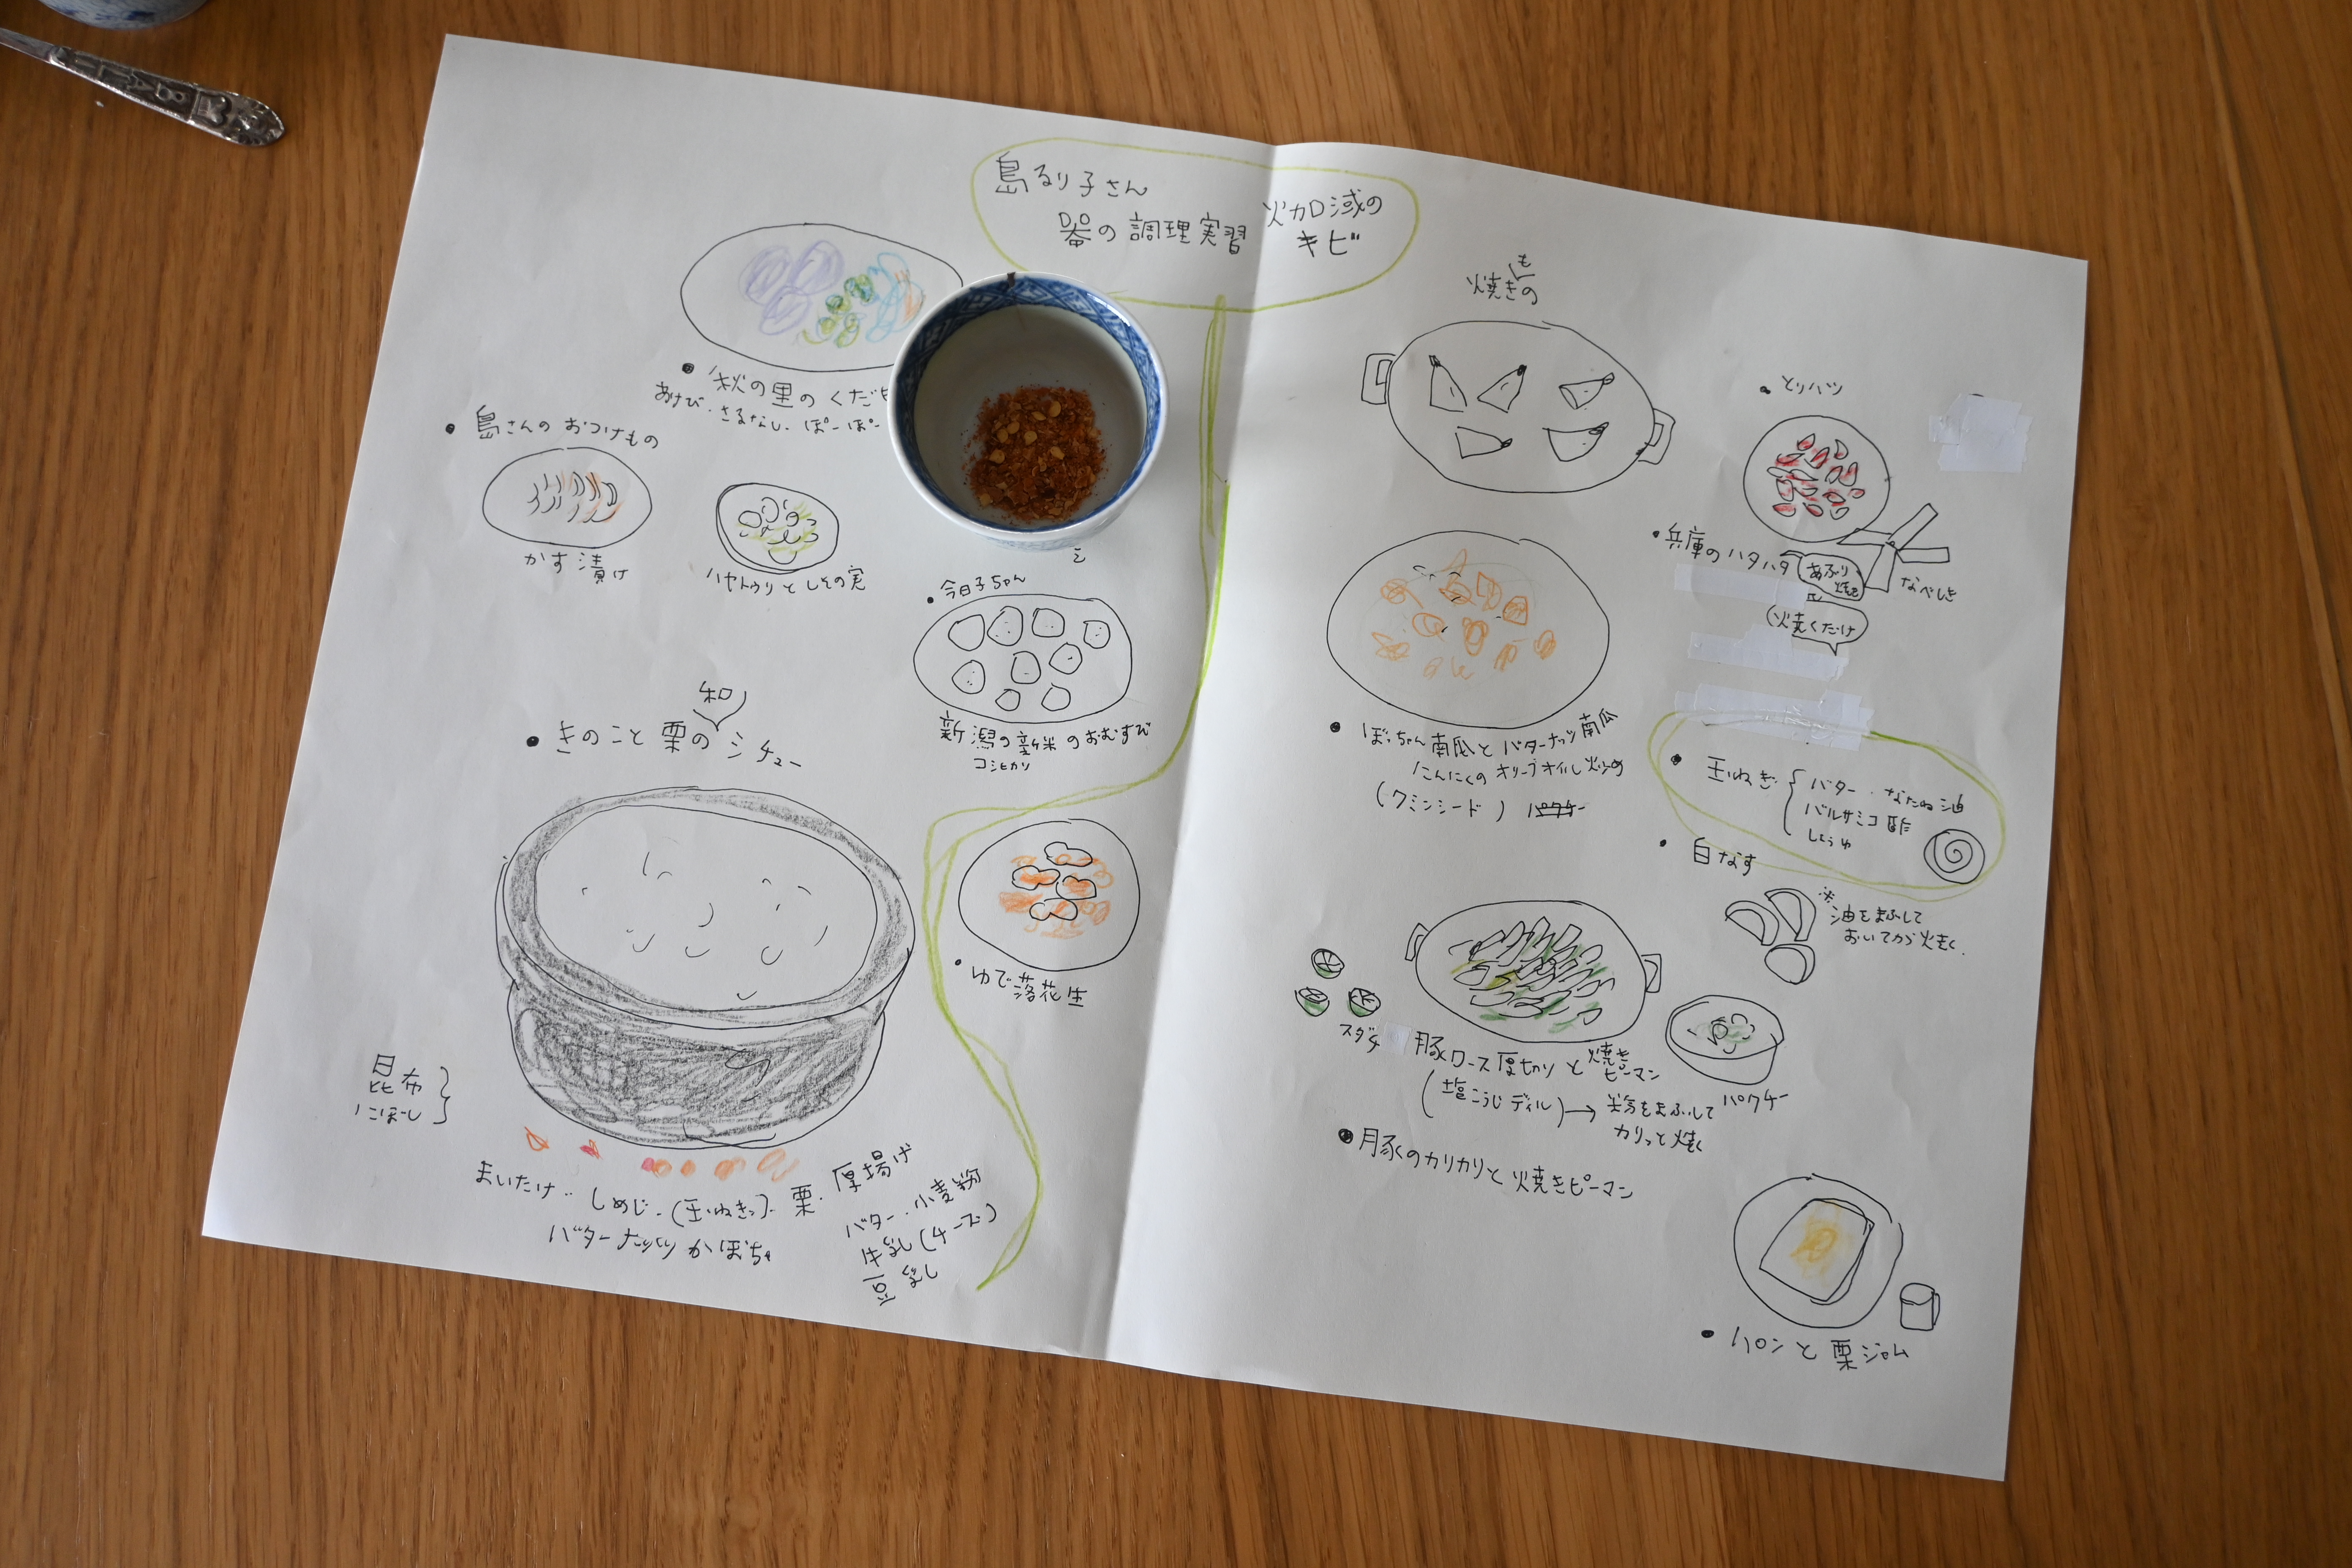 島るり子さん
器の調理実習
火加減の
キビ
秋の里のくだ
あけび・さるなし・ぽーぽー
島さんのおつけもの
かす漬け
ハヤトウリとしその実
今日子ちゃん
新潟の新米のおむすび
コシヒカリ
和
きのこと栗のシチュー
ゆで落花生
昆布
にぼし
まいたけ・しめじ・(玉ねぎ)・栗・厚揚げ
バターナッツかぼちゃ
バター・小麦粉
牛乳(チーズ)
豆乳
も
焼きの
とりハツ
兵庫のハタハタ
あぶり
焼き
なべしき
焼くだけ
ぼっちゃん南瓜とバターナッツ南瓜
にんにくのオリーブオイル炒め
(クミンシード) パクチー
玉ねぎ
バター・なたね油
バルサミコ酢
しょうゆ
白なす
※
油をまぶして
おいてから焼く.
スダチ
豚ロース厚切りと焼き
ピーマン
(塩こうじディル)→粉をまぶして
カリッと焼く
パクチー
豚のカリカリと焼きピーマン
パンと栗ジャム